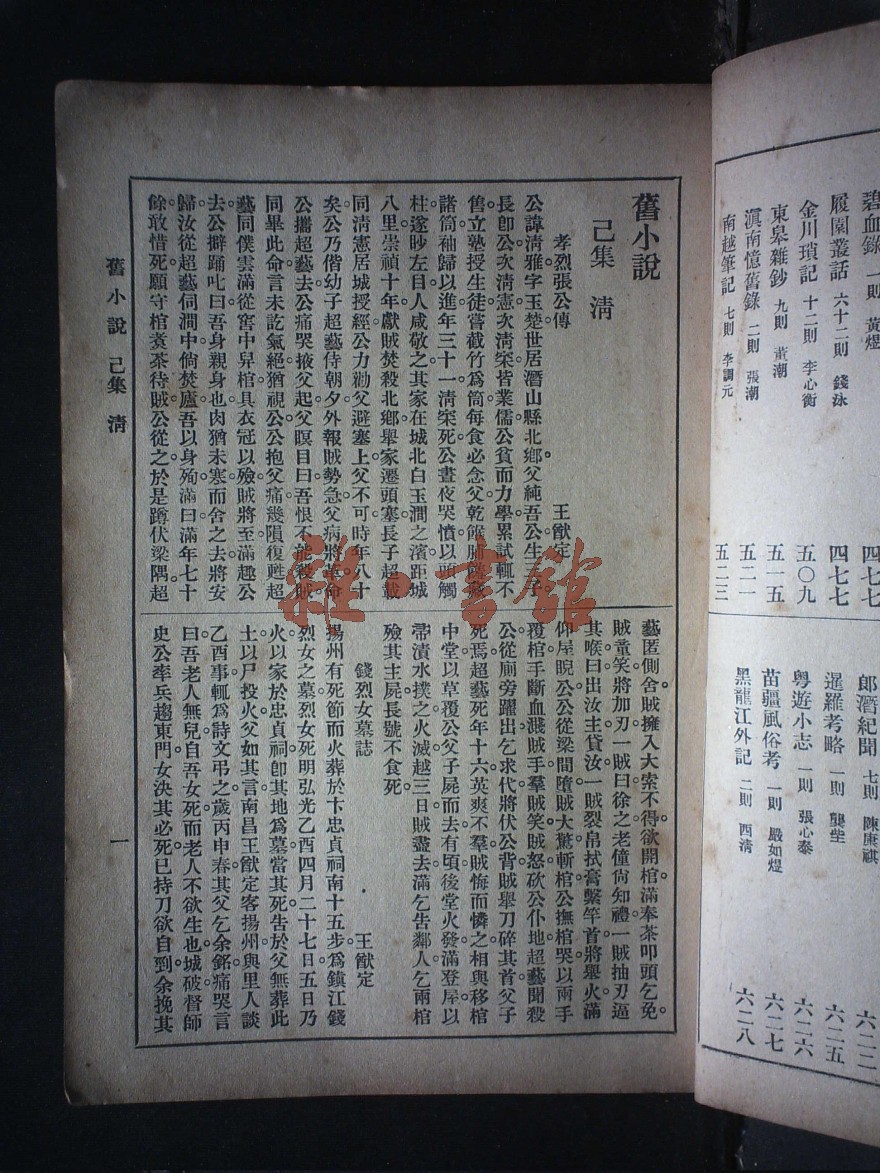 碧血錄 一則 黃煜
四七七
履園叢話 六十二則 錢泳
四七七
金川瑣記 十二則 李心衡
五〇九
東皋雜鈔 九則 董潮
五一五
滇南憶舊錄 二則 張潮
五二一
南越筆記 七則 李調元
五二三
郎潛紀聞 七則 陳康祺
六二二
暹羅考略 一則 龔柴
六二五
粵遊小志 一則 張心泰
六二六
苗疆風俗考 一則 嚴如煜
六二七
黑龍江外記 二則 西清
六二八
舊小說
己集 清
孝烈張公傳 王猷定
公諱清雅字玉楚世居潛山縣北鄉父純吾公生三子
長卽公次清憲次清寀皆業儒公貧而力學累試輒不
售立塾授生徒嘗截竹爲筒每食必念父乾餱脯醢
諸筒袖歸以進年三十一清寀死公晝夜哭憤以頭觸
柱遂眇左目人咸敬之其家在城北白玉澗之濱距城
八里崇禎十年獻賊焚殺北鄉舉家遷頭塞長子超載
同清憲居城授經公力勸父避塞上父不可時年八十
矣公乃偕幼子超藝侍朝夕外報賊勢急父病將革命
公攜超藝去公痛哭掖父起父暝目曰吾恨不能殺賊
同畢此命言未訖氣絕猶視公公抱父痛幾隕復甦超
藝同僕雲滿從窖中舁棺具衣冠以殮賊將至滿趣公
去公擗踊叱曰吾身親身也肉猶未寒而舍之去將安
歸汝從超藝伺澗中倘焚廬吾以身殉滿曰滿年七十
餘敢惜死願守棺煑茶待賊公從之於是蹲伏梁隅超
藝匿側舍賊擁入大索不得欲開棺滿奉茶叩頭乞免
賊童笑將加刃一賊曰徐之老僮尙知禮一賊抽刃逼
其喉曰出汝主貸汝一賊裂帛拭膏繫竿首將舉火滿
仰屋睨公公從梁間墮賊大驚斬棺公撫棺哭以兩手
覆棺手斷血濺賊手羣賊笑賊怒砍公仆地超藝聞殺
公從廁旁躍出乞求代將伏公背賊舉刀碎其首父子
死焉超藝死年十六英爽不羣賊悔而憐之相與移棺
中堂以草覆公父子屍而去有頃後堂火發滿登屋以
帚漬水撲之火滅越三日賊盡去滿乞告鄰人乞兩棺
殮其主屍長號不食死
錢烈女墓誌 王猷定
揚州有死節而火葬於卞忠貞祠南十五步爲鎮江錢
烈女之墓烈女死明弘光乙酉四月二十七日五日乃
火以家於忠貞祠卽其地爲墓當其死吿於父無葬此
土以尸投火父如其言南昌王猷定客揚州與里人談
乙酉事輒爲詩文弔之歲丙申春其父乞余銘痛哭言
曰吾老人無兒自吾女死而老人不欲生也城破督師
史公率兵趨東門女決其必死已持刀欲自刭余挽其
舊小說 己集 清
一
雜書館